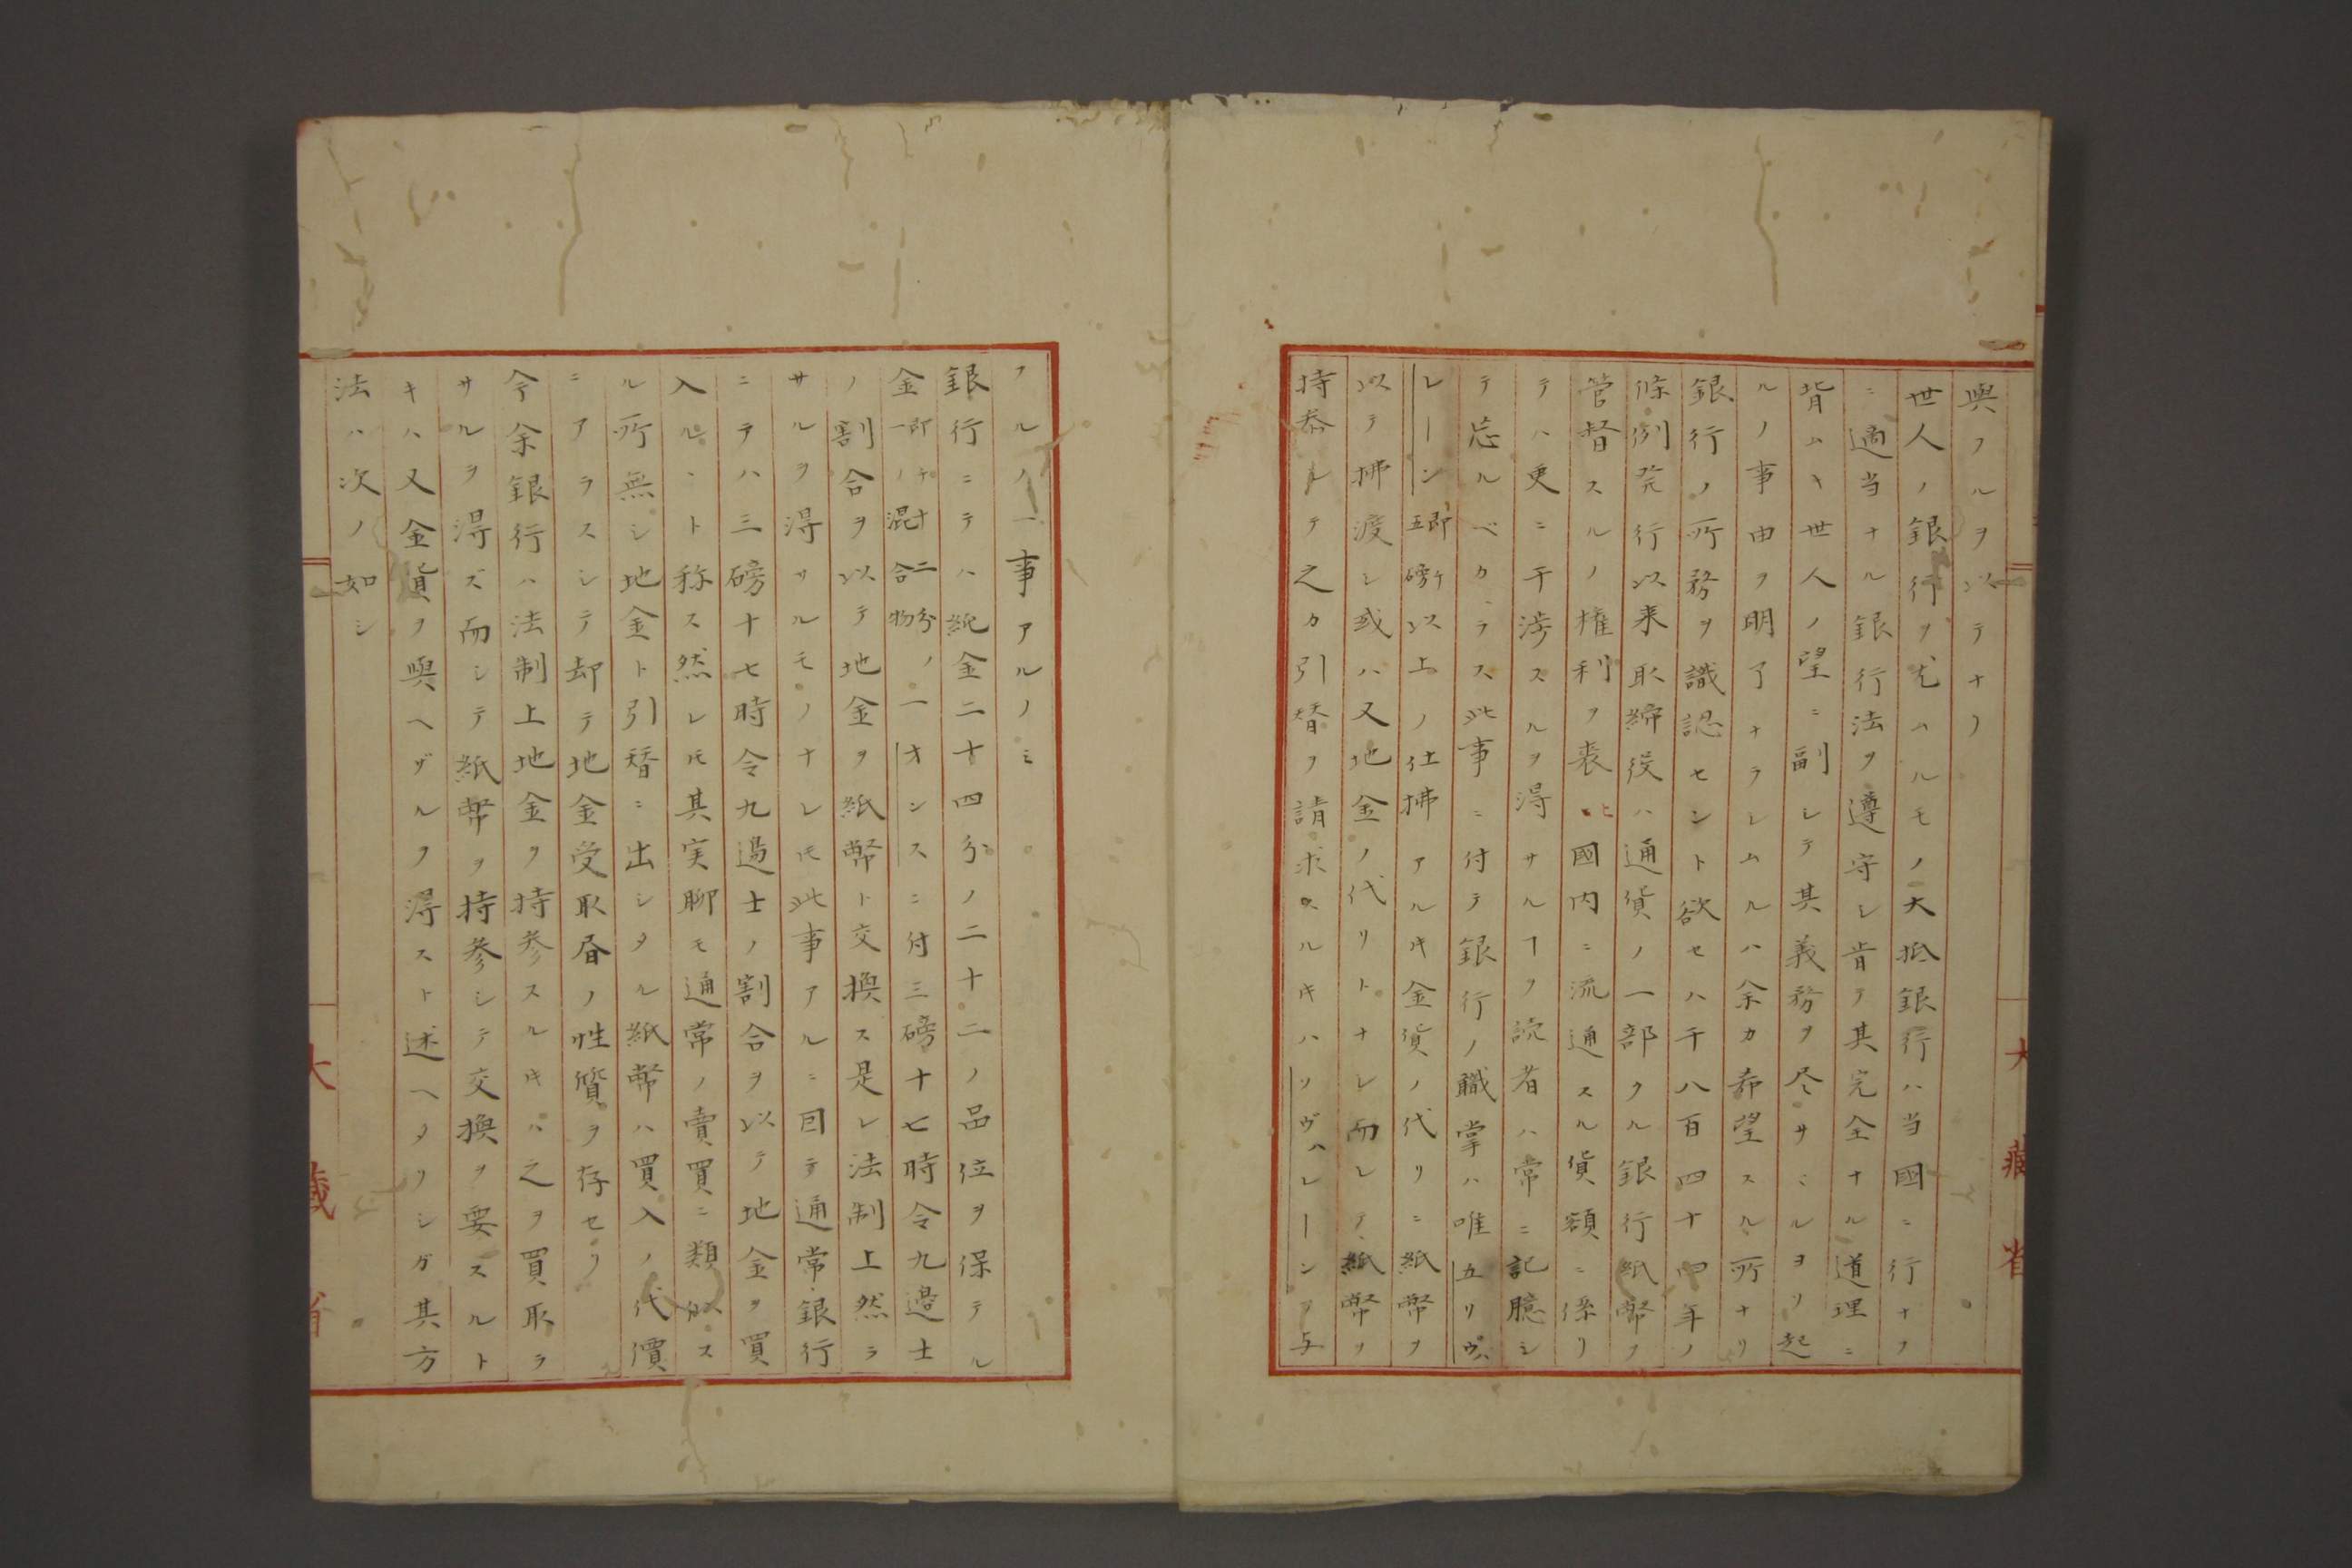 與フルヲ以テナリ
世人ノ銀行ヲ尤ムルモノ大抵銀行ハ当國ニ行ナフ
ニ適当ナル銀行法ヲ遵守シ肯テ其完全ナル道理ニ
背ムキ世人ノ望ニ副シテ其義務ヲ尽サヾルヨリ起
ルノ事由ヲ明了ナラシムルハ余カ希望スル所ナリ
銀行ノ所務ヲ識認セント欲セハ千八百四十四年ノ
條例発行以来取締役ハ通貨ノ一部タル銀行紙幣ヲ
管督スルノ権利ヲ喪ヒ國内ニ流通スル貨額ニ係リ
テハ更ニ干渉スルヲ得サルヿヲ読者ハ常ニ記臆シ
テ忘ルベカラス此事ニ付テ銀行ノ職掌ハ唯五リヴハ
レーン即チ五磅以上ノ仕拂アルキ金貨ノ代リニ紙幣ヲ
以テ拂渡シ或ハ又地金ノ代リトナシ而シテ紙幣ヲ
持参シテ之カ引替ヲ請求スルキハソヴハレーンヲ与
フルノ一事アルノミ
銀行ニテハ純金二十四分ノ二十二ノ品位ヲ保テル
金即チ十二分ノ一ノ混合物ノ一オンスニ付三磅十七時令九邉士
ノ割合ヲ以テ地金ヲ紙幣ト交換ス是レ法制上然ラ
サルヲ得サルモノナレモ此事アルニ因テ通常銀行
ニテハ三磅十七時令九邉士ノ割合ヲ以テ地金ヲ買
入ルヽト称ス然レモ其実聊モ通常ノ賣買ニ類似ス
ル所無シ地金ト引替ニ出シタル紙幣ハ買入ノ代價
ニアラスシテ却テ地金受取昏ノ性質ヲ存セリ
今余銀行ハ法制上地金ヲ持参スルキハ之ヲ買取ラ
サルヲ得ズ而シテ紙幣ヲ持参シテ交換ヲ要スルト
キハ又金貨ヲ與ヘザルヲ得スト述ヘタリシガ其方
法ハ次ノ如シ
大藏省
大藏省